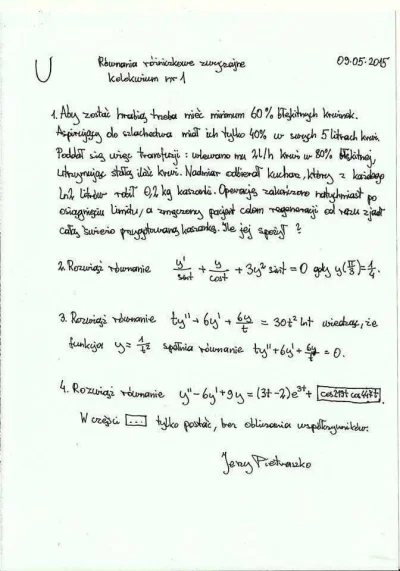 U
Równania różniczkowe zwyczajne 09.05.2015
kolokwium nr 1
1. Aby zostać hrabią trzeba mieć minimum 60% błękitnych krwinek.
Aspirujący do szlachectwa miał ich tylko 40% w swych 5 litrach krwi.
Poddał się więc transfuzji: wlewano mu 2l/h krwi w 80% błękitnej,
utrzymując stałą ilość krwi. Nadmiar odbierał kucharz, który z każdego
ln2 litrów robił 0,2 kg kaszanki. Operację zakończono natychmiast po
osiągnięciu limitu, a zmęczony pacjent celem regeneracji od razu zjadł
całą świeżo przygotowaną kaszankę. Ile jej spożył?
2. Rozwiąż równanie y'/sint + y/cost + 3y² sint = 0 gdy y(π/3) = 1/4.
3. Rozwiąż równanie ty'' + 6y' + 6y/t = 30t² lnt wiedząc, że
funkcja y = 1/t² spełnia równanie ty'' + 6y' + 6y/t = 0.
4. Rozwiąż równanie y'' - 6y' + 9y = (3t-2)e³ᵗ + cos219t cos447t.
W części ... tylko postać, bez obliczania współczynników.
Jerzy Pietraszko